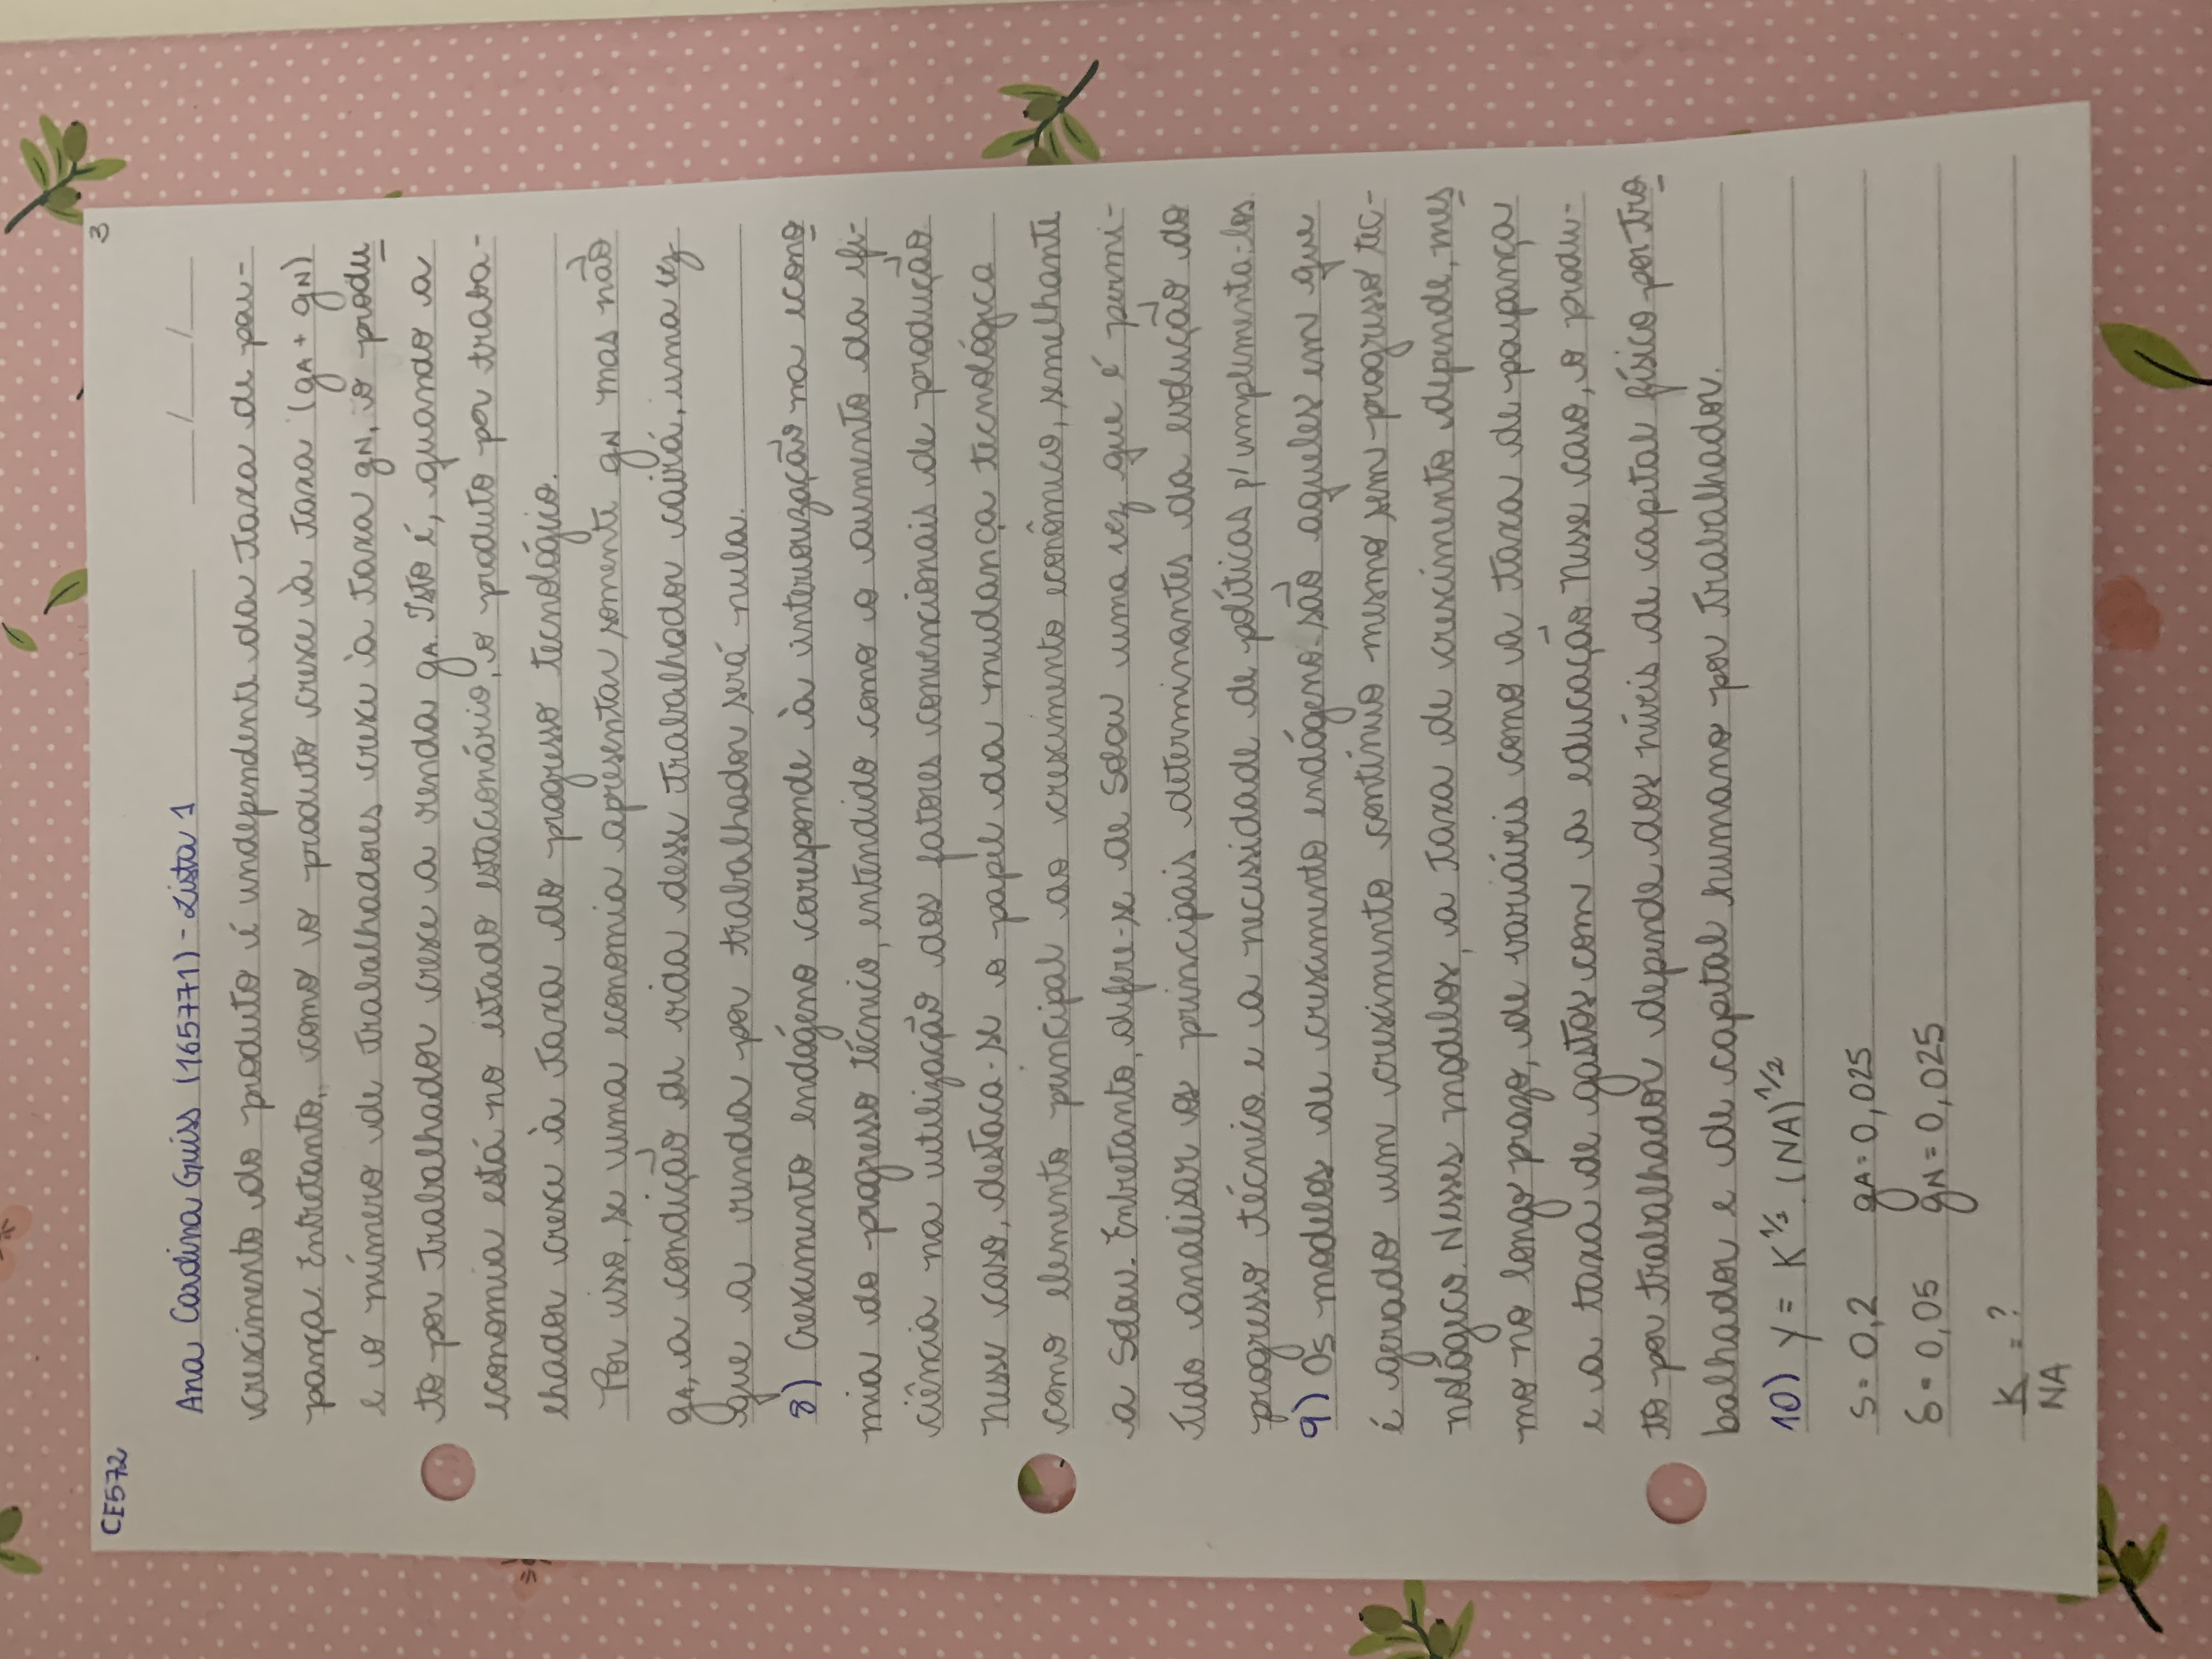 CE572
3
Ana Carolina Guiss (165771) - Lista 1 __/__/__
crescimento do produto é independente da taxa de pou-
pança. Entretanto, como o produto cresce à taxa (gA + gN)
e o número de trabalhadores cresce à taxa gN, o produ
to por trabalhador cresce a renda gA. Isto é, quando a
economia está no estado estacionário, o produto por traba-
lhador cresce à taxa do progresso tecnológico.
Por isso, se uma economia apresentar somente gN mas não
gA, a condição de vida desse trabalhador cairá, uma vez
que a renda por trabalhador será nula.
8) Crescimento endógeno corresponde à interiorização na econo
mia do progresso técnico, entendido como o aumento da efi-
ciência na utilização dos fatores convencionais de produção
nesse caso, destaca-se o papel da mudança tecnológica
como elemento principal ao crescimento econômico, semelhante
a Solow. Entretanto, difere-se de Solow uma vez que é permi-
tido analisar os principais determinantes da evolução do
progresso técnico e a necessidade de políticas p/ implementa-los.
9) Os modelos de crescimento endógeno são aqueles em que
é gerado um crescimento contínuo mesmo sem progresso tec-
nológico. Nesses modelos, a taxa de crescimento depende, mes
mo no longo prazo, de variáveis como a taxa de poupança
e a taxa de gastos com a educação. Nesse caso, o produ-
to por trabalhador depende dos níveis de capital físico por tra
balhador e de capital humano por trabalhador.
10) Y = K^1/2 . (NA)^1/2
S = 0,2 gA = 0,025
δ = 0,05 gN = 0,025
K/NA = ?